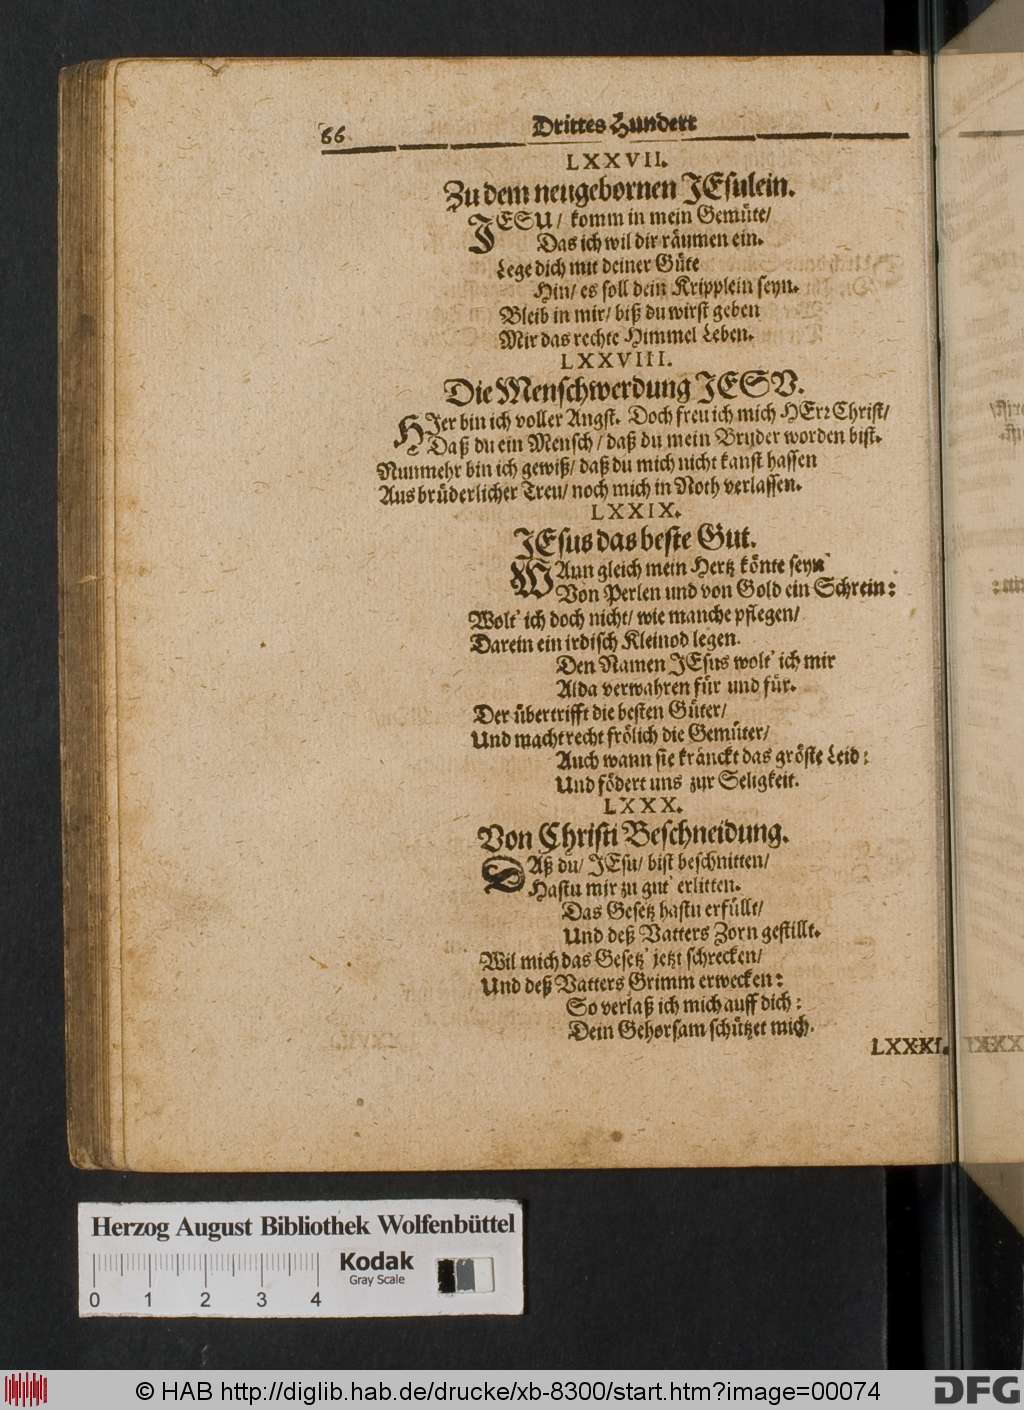 66
Drittes Hundert
LXXVII.
Zu dem neugebornen JEsulein.
JESU/ komm in mein Gemüte/
Das ich wil dir räumen ein.
Lege dich mit deiner Güte
Hin/ es soll dein Kripplein seyn.
Bleib in mir/ biß du wirst geben
Mir das rechte Himmel Leben.
LXXVIII.
Die Menschwerdung JESV.
HIer bin ich voller Angst. Doch freu ich mich HErr Christ/
Daß du ein Mensch/ daß du mein Bruder worden bist.
Nunmehr bin ich gewiß/ daß du mich nicht kanst hassen
Aus brüderlicher Treu/ noch mich in Noth verlassen.
LXXIX.
JEsus das beste Gut.
WAnn gleich mein Hertz könte seyn
Von Perlen und von Gold ein Schrein:
Wolt' ich doch nicht/ wie manche pflegen/
Darein ein irdisch Kleinod legen.
Den Namen JEsus wolt' ich mir
Alda verwahren für und für.
Der übertrifft die besten Güter/
Und macht recht frölich die Gemüter/
Auch wann sie kränckt das gröste Leid:
Und födert uns zur Seligkeit.
LXXX.
Von Christi Beschneidung.
DAß du/ JEsu/ bist beschnitten/
Hastu mir zu gut' erlitten.
Das Gesetz hastu erfüllt/
Und deß Vatters Zorn gestillt.
Wil mich das Gesetz' jetzt schrecken/
Und deß Vatters Grimm erwecken:
So verlaß ich mich auff dich:
Dein Gehorsam schützet mich.
LXXXI.
Herzog August Bibliothek Wolfenbüttel
Kodak
Gray Scale
0 1 2 3 4
© HAB http://diglib.hab.de/drucke/xb-8300/start.htm?image=00074
DFG